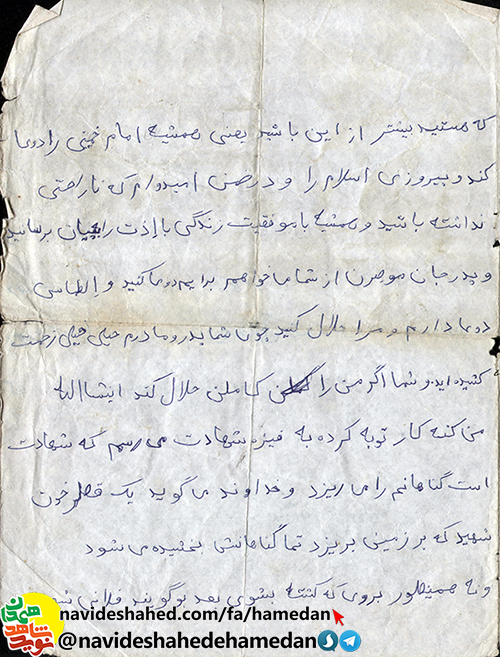 که هستید بیشتر از این باشید یعنی همیشه امام خمینی را دوعا
کند و پیروزی اسلام را و در ضمن امیدوارم که ناراحتی
نداشته باشید و همیشه با موفقیت زندگی با لذت را بپایان برسانید
و پدر جان من از شما می‌خواهم برایم دوعا کنید و اِلطماسی
دوعا دارم و مرا حلال کنید چون شما پدر و مادرم خیلی خیلی زحمت
کشیده‌اید و شما اگر من را کاملن حلال کند ایشااله
من گنه کار توبه کرده به فیزه شهادت می رسم که شهادت
است گناهانم را می ریزد و خداوند می گوید یک قطر خون
شهید که بر زمین بریزد تما گناهانش بخشیده می شود
و نه همینطور بروی که کشته بشوی بعد بوگویند فلانی
navideshahed.com/fa/hamedan
@navideshahedehamedan
نوید شاهد همدان